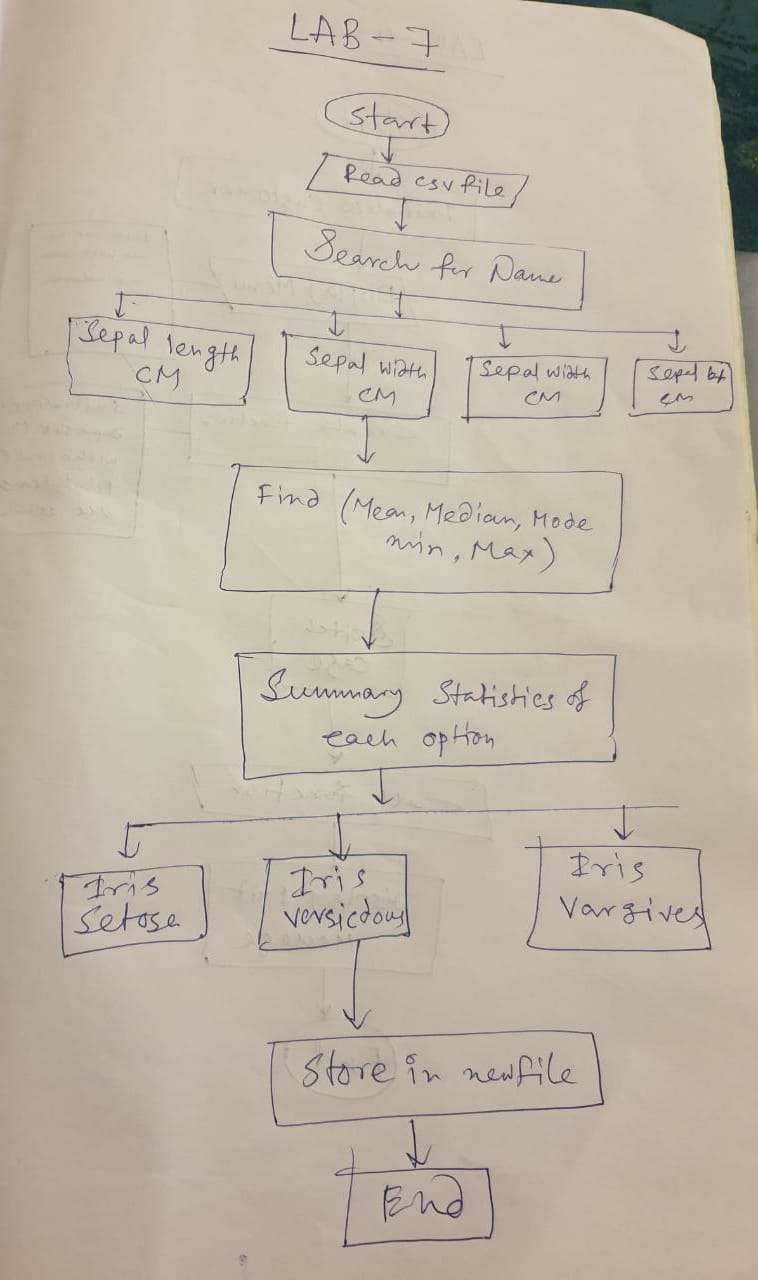 LAB-7
Start
Read csv file
Search for Name
Sepal length
CM
Sepal width
CM
Sepal width
CM
Sepal
CM
Find (Mean, Median, Mode
min, Max)
Summary Statistics of
each option
Iris
Setosa
Iris
Iris
Vargives
Store in newfile
End